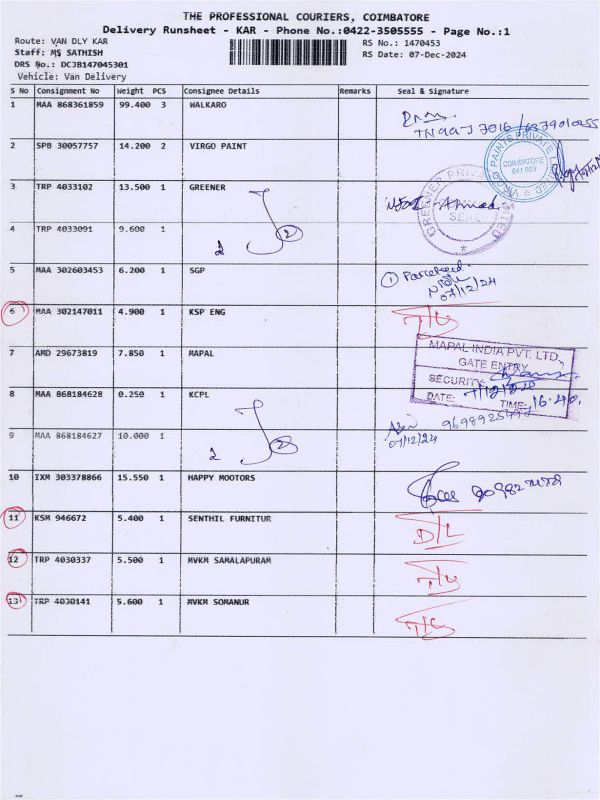 THE PROFESSIONAL COURIERS, COIMBATORE
Delivery Runsheet - KAR - Phone No.:0422-3505555 - Page No.:1
Route: VAN DLY KAR
RS No.: 1470453
Staff: MS SATHISH
RS Date: 07-Dec-2024
DRS No.: DCJB147045301
Vehicle: Van Delivery
S No Consignment No Weight PCS Consignee Details Remarks Seal & Signature
1 MAA 868361859 99.400 3 WALKARO
2 SPB 30057757 14.200 2 VIRGO PAINT
VIRGO PAINTS PRIVATE LIMITED
COIMBATORE
641 659
3 TRP 4033102 13.500 1 GREENER
GREENER PRIVATE LIMITED
SEAL
2
4 TRP 4033091 9.600 1
2
5 MAA 302603453 6.200 1 SGP
1
07/12/24
6 MAA 302147011 4.900 1 KSP ENG
7 AMD 29673819 7.850 1 MAPAL
MAPAL INDIA PVT. LTD.,
GATE ENTRY
SECURITY:
DATE: TIME: 16.40
8 MAA 868184628 0.250 1 KCPL
2
9 MAA 868184627 10.000 1
2
07/12/24
10 IXM 303378866 15.550 1 HAPPY MOOTORS
11 KSM 946672 5.400 1 SENTHIL FURNITUR
D/L
12 TRP 4030337 5.500 1 MVKM SAMALAPURAM
13 TRP 4030141 5.600 1 MVKM SOMANUR